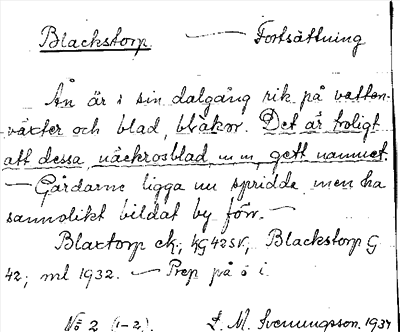 Blackstorp. — Fortsättning
Ån är i sin dalgång rik på vatten-
växter och blad, blåkor. Det är troligt
att dessa, näckrosblad, m m, gett namnet.
— Gårdarne ligga nu spridde men ha
sannolikt bildat by förr. —
Blaxtorp ek; KG 42 SV, Blackstorp G
42; ml 1932. — Prep på å i.
No 2 (1-2). L. M. Svenungsson. 1934